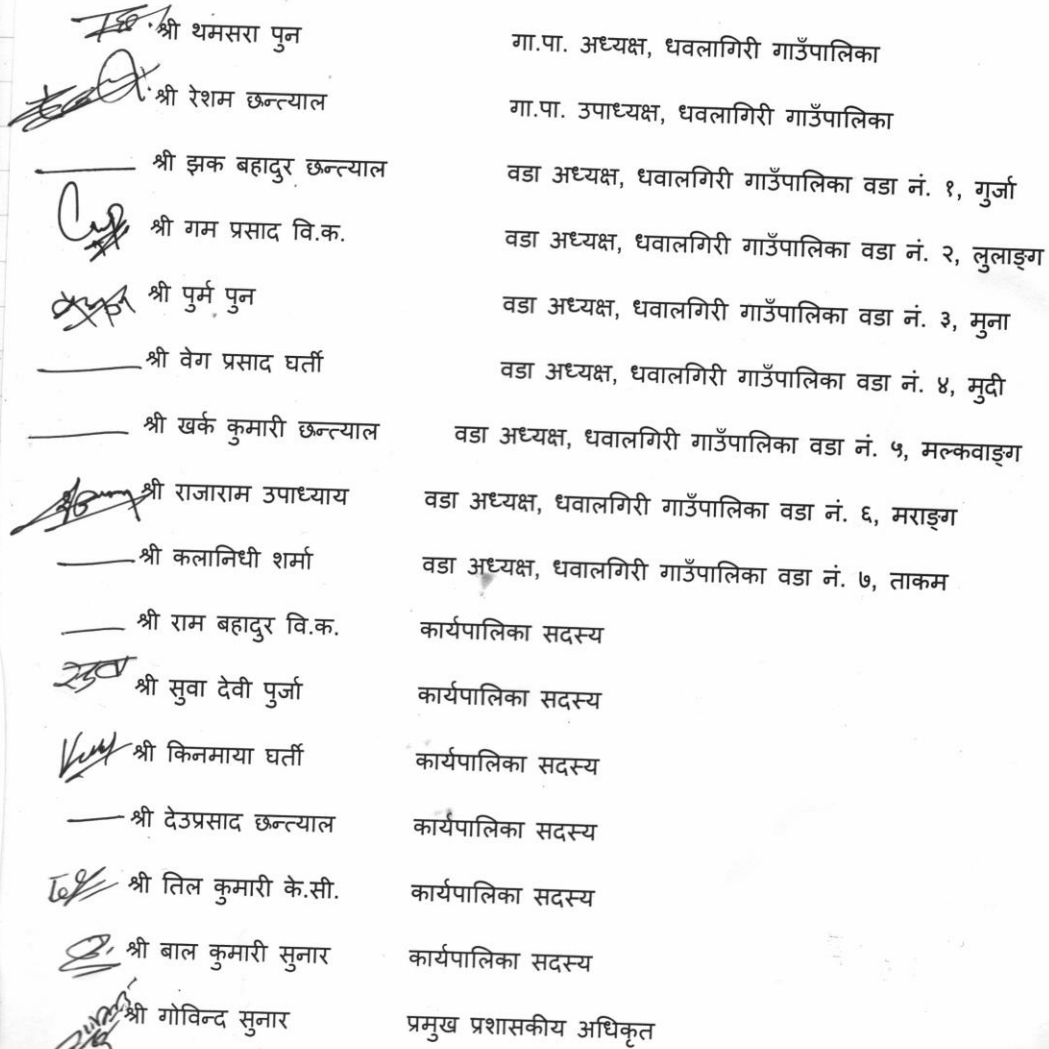 श्री थमसरा पुन गा.पा. अध्यक्ष, धवलागिरी गाउँपालिका
श्री रेशम छन्त्याल गा.पा. उपाध्यक्ष, धवलागिरी गाउँपालिका
श्री झक बहादुर छन्त्याल वडा अध्यक्ष, धवालगिरी गाउँपालिका वडा नं. १, गुर्जा
श्री गम प्रसाद वि.क. वडा अध्यक्ष, धवालगिरी गाउँपालिका वडा नं. २, लुलाङ्ग
श्री पुर्म पुन वडा अध्यक्ष, धवालगिरी गाउँपालिका वडा नं. ३, मुना
श्री वेग प्रसाद घर्ती वडा अध्यक्ष, धवालगिरी गाउँपालिका वडा नं. ४, मुदी
श्री खर्क कुमारी छन्त्याल वडा अध्यक्ष, धवालगिरी गाउँपालिका वडा नं. ५, मल्कवाङ्ग
श्री राजाराम उपाध्याय वडा अध्यक्ष, धवालगिरी गाउँपालिका वडा नं. ६, मराङ्ग
श्री कलानिधी शर्मा वडा अध्यक्ष, धवालगिरी गाउँपालिका वडा नं. ७, ताकम
श्री राम बहादुर वि.क. कार्यपालिका सदस्य
श्री सुवा देवी पुर्जा कार्यपालिका सदस्य
श्री किनमाया घर्ती कार्यपालिका सदस्य
श्री देउप्रसाद छन्त्याल कार्यपालिका सदस्य
श्री तिल कुमारी के.सी. कार्यपालिका सदस्य
श्री बाल कुमारी सुनार कार्यपालिका सदस्य
श्री गोविन्द सुनार प्रमुख प्रशासकीय अधिकृत